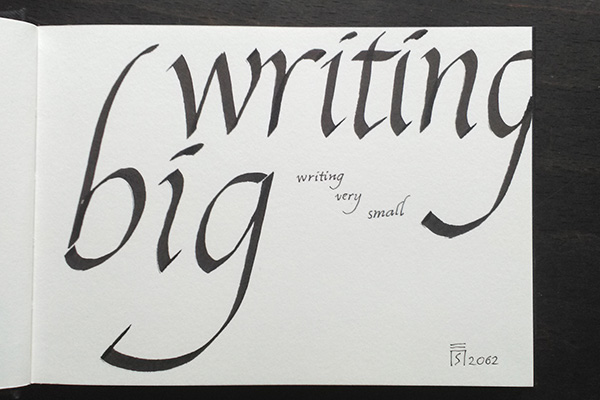 writing
big
writing
very
small
S 2062